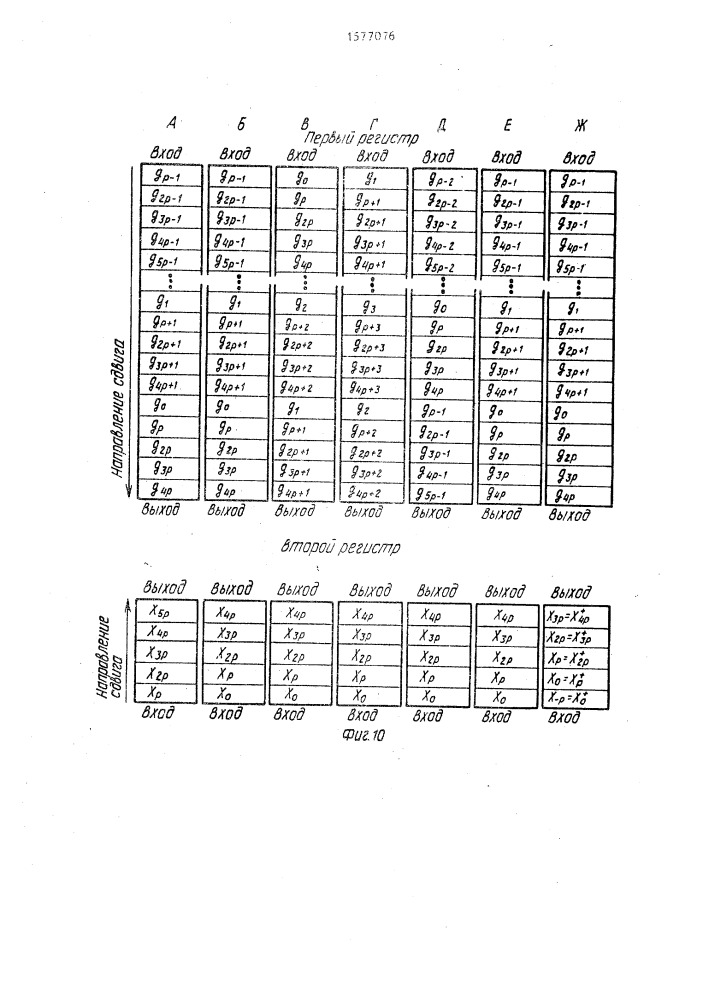 1577076
А Б В Г Д Е Ж
Первый регистр
вход вход вход вход вход вход вход
gр-1 gр-1 g0 g1 gр-2 gр-1 gр-1
g2р-1 g2р-1 gр gр+1 g2р-2 g2р-1 g2р-1
g3р-1 g3р-1 g2р g2р+1 g3р-2 g3р-1 g3р-1
g4р-1 g4р-1 g3р g3р+1 g4р-2 g4р-1 g4р-1
g5р-1 g5р-1 g4р g4р+1 g5р-2 g5р-1 g5р-1
g1 g1 g2 g3 g0 g1 g1
gр+1 gр+1 gр+2 gр+3 gр gр+1 gр+1
g2р+1 g2р+1 g2р+2 g2р+3 g2р g2р+1 g2р+1
g3р+1 g3р+1 g3р+2 g3р+3 g3р g3р+1 g3р+1
g4р+1 g4р+1 g4р+2 g4р+3 g4р g4р+1 g4р+1
g0 g0 g1 g2 gр-1 g0 g0
gр gр gр+1 gр+2 g2р-1 gр gр
g2р g2р g2р+1 g2р+2 g3р-1 g2р g2р
g3р g3р g3р+1 g3р+2 g4р-1 g3р g3р
g4р g4р g4р+1 g4р+2 g5р-1 g4р g4р
выход выход выход выход выход выход выход
Направление сдвига
второй регистр
выход выход выход выход выход выход выход
X5р X4р X4р X4р X4р X4р X3р=X⁺4р
X4р X3р X3р X3р X3р X3р X2р=X⁺3р
X3р X2р X2р X2р X2р X2р Xр=X⁺2р
X2р Xр Xр Xр Xр Xр X0=X⁺р
Xр X0 X0 X0 X0 X0 X-р=X⁺0
вход вход вход вход вход вход вход
Направление
сдвига
Фиг.10